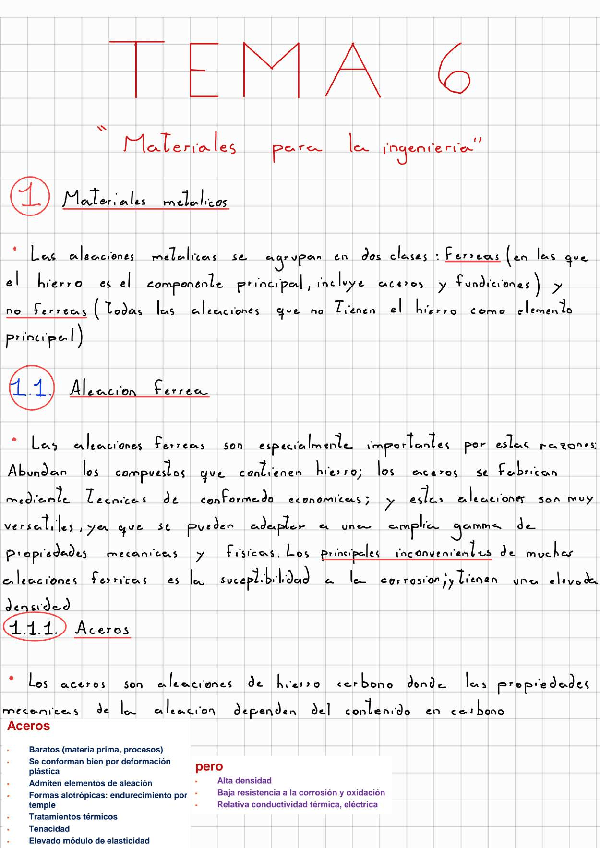 TEMA 6
"Materiales para la ingenieria"
1 Materiales metalicos
• Las aleaciones metalicas se agrupan en dos clases: Ferreas (en las que
el hierro es el componente principal, incluye aceros y fundiciones) y
no ferreas (todas las aleaciones que no tienen el hierro como elemento
principal)
1.1. Aleacion Ferrea
• Las aleaciones ferreas son especialmente importantes por estas razones:
Abundan los compuestos que contienen hierro; los aceros se fabrican
mediante tecnicas de conformado economicas; y estas aleaciones son muy
versatiles, ya que se pueden adaptar a una amplia gamma de
propiedades mecanicas y fisicas. Los principales inconvenientes de muchas
aleaciones ferricas es la suceptibilidad a la corrosion; y tienen una elevada
densidad
1.1.1. Aceros
• Los aceros son aleaciones de hierro carbono donde las propiedades
mecanicas de la aleacion dependen del contenido en carbono
Aceros
• Baratos (materia prima, procesos)
• Se conforman bien por deformación
plástica
• Admiten elementos de aleación
• Formas alotrópicas: endurecimiento por
temple
• Tratamientos térmicos
• Tenacidad
• Elevado módulo de elasticidad
pero
• Alta densidad
• Baja resistencia a la corrosión y oxidación
• Relativa conductividad térmica, eléctrica